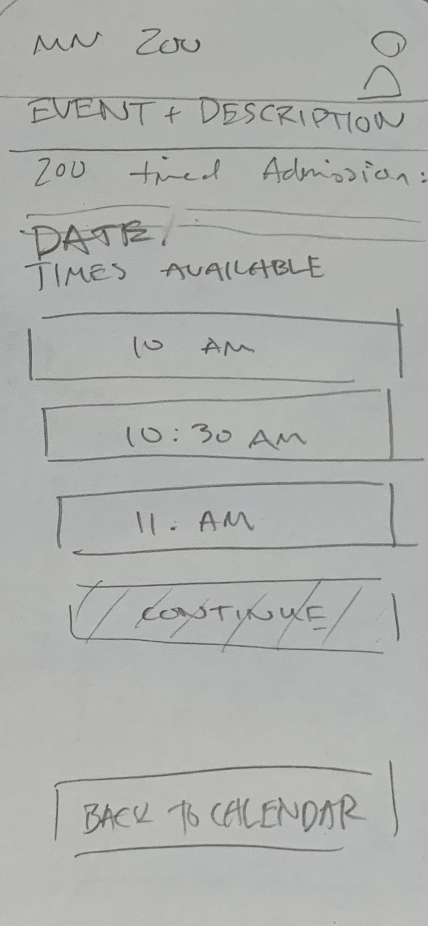 MN ZOO
EVENT + DESCRIPTION
ZOO timed Admission:
DATE/
TIMES AVAILABLE
10 AM
10:30 AM
11. AM
CONTINUE
BACK TO CALENDAR